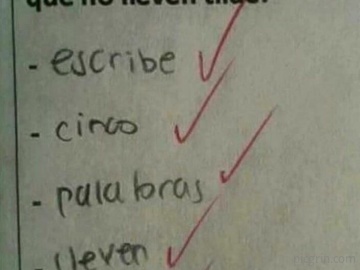 que no lleven tilde.
- escribe
- cinco
- palabras
- lleven